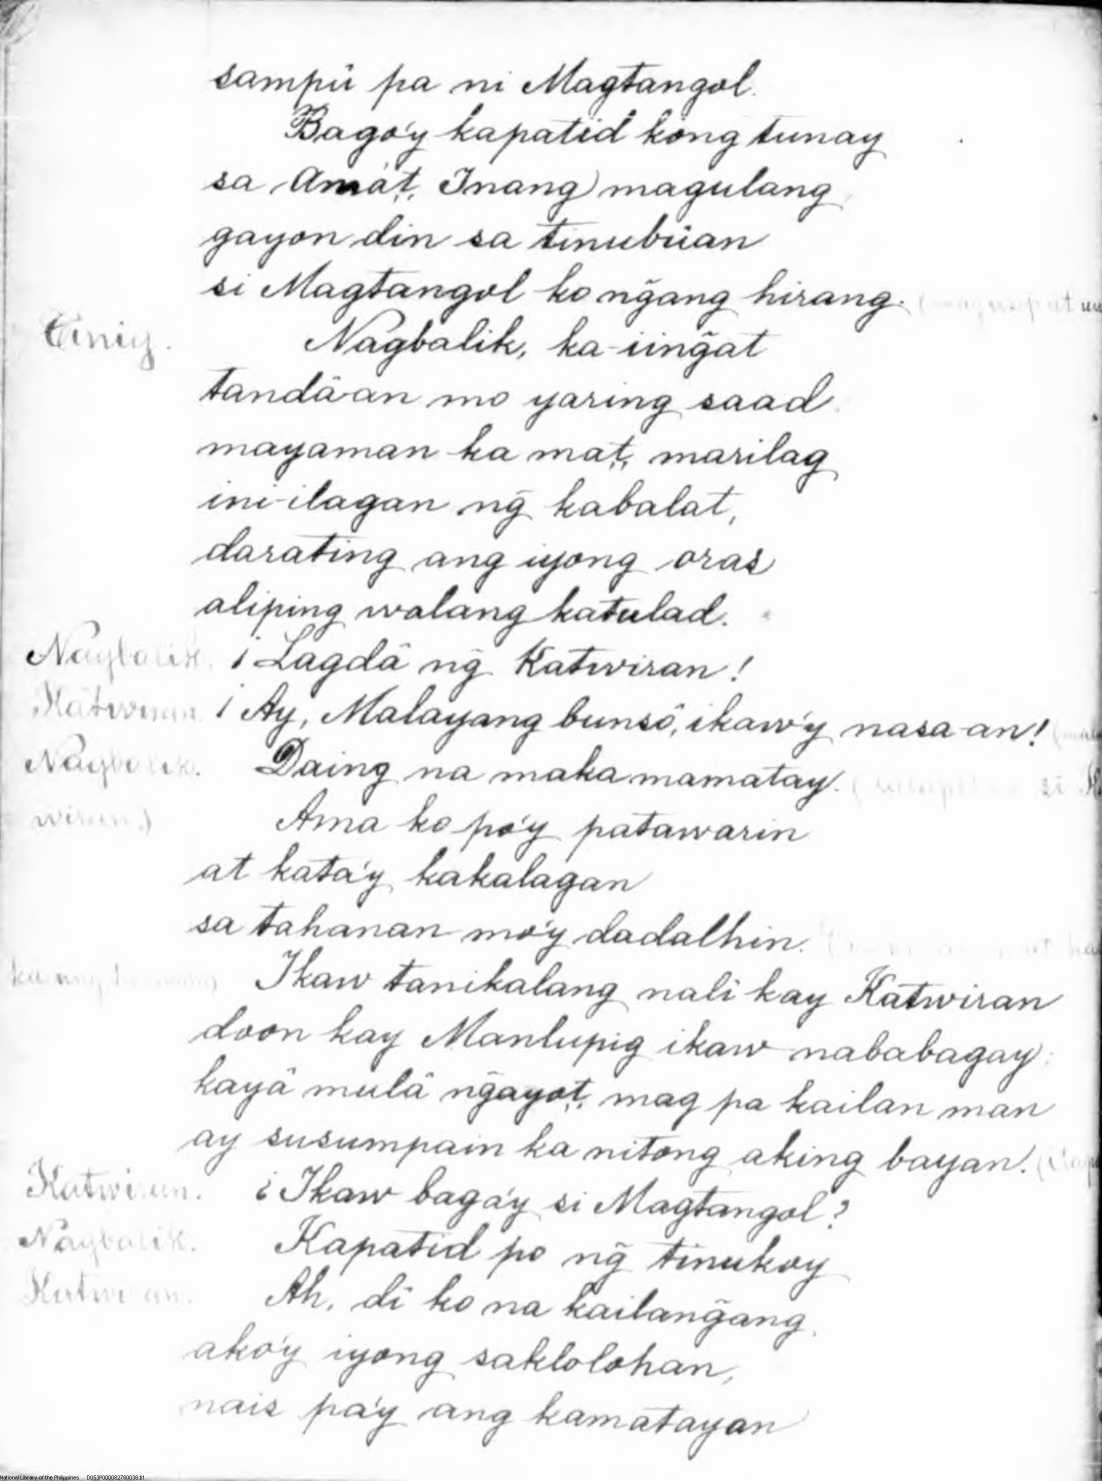 sampû pa ni Magtangol.
Bago'y kapatid kong tunay
sa Amá't, Inang magulang
gayon din sa tinubúan
si Magtangol ko ng̃ang hirang.
Tinig. Nagbalik, ka-iing̃at
tandâan mo yaring saad
mayaman ka ma't, marilag
ini-ilagan ng̃ kabalat,
darating ang iyong oras
aliping walang katulad.
Nagbalik. ¡Lagdâ ng̃ Katwiran!
Katwiran. ¡Ay, Malayang bunsô, ikaw'y nasa-an!
Nagbalik. Daing na maka mamatay. ( si
wiran.) Ama ko po'y patawarin
at kata'y kakalagan
sa tahanan mo'y dadalhin.
Ikaw tanikalang nali kay Katwiran
doon kay Manlupig ikaw nababagay:
kayâ mulâ ng̃ayo't, mag pa kailan man
ay susumpain ka nitong aking bayan.
Katwiran. ¿Ikaw baga'y si Magtangol?
Nagbalik. Kapatid po ng̃ tinukoy
Katwiran. Ah, di ko na kailang̃ang
ako'y iyong saklolohan,
nais pa'y ang kamatayan
National Library of the Philippines